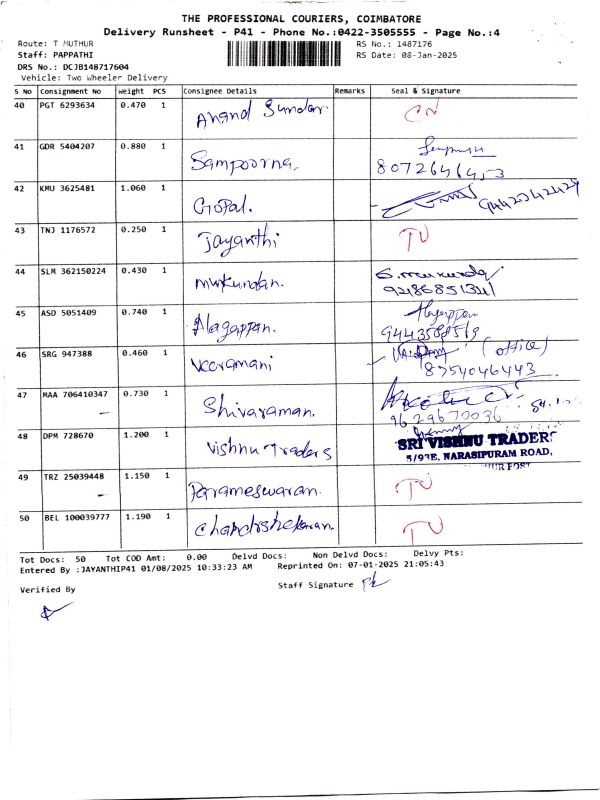 THE PROFESSIONAL COURIERS, COIMBATORE
Delivery Runsheet - P41 - Phone No.:0422-3505555 - Page No.:4
Route: T MUTHUR
RS No.: 1487176
Staff: PAPPATHI
RS Date: 08-Jan-2025
DRS No.: DCJB148717604
Vehicle: Two Wheeler Delivery
S No Consignment No Weight PCS Consignee Details Remarks Seal & Signature
40 PGT 6293634 0.470 1 Anand Sundar CN
41 GDR 5404207 0.880 1 Sampoorna.
42 KMU 3625481 1.060 1 GOPal. 9442342429
43 TNJ 1176572 0.250 1 Jayanthi TU
44 SLM 362150224 0.430 1 Mukundan.
45 ASD 5051409 0.740 1 Alagappan. Alagappan
9443588569
46 SRG 947388 0.460 1 Veeramani (office)
8754046443
47 MAA 706410347 0.730 1 Shivaraman.
9629670036
48 DPM 728670 1.200 1 Vishnu traders SRI VISHNU TRADERS
5/93E, NARASIPURAM ROAD,
49 TRZ 25039448 1.150 1 Parameswaran. TU
50 BEL 100039777 1.190 1 Chandrshekaran. TU
Tot Docs: 50 Tot COD Amt: 0.00 Delvd Docs: Non Delvd Docs: Delvy Pts:
Entered By :JAYANTHIP41 01/08/2025 10:33:23 AM Reprinted On: 07-01-2025 21:05:43
Staff Signature
Verified By